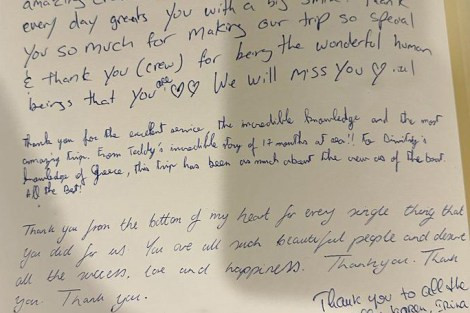 amazing
every day greets you with a big smile. Thank
you so much for making our trip so special
& thank you (crew) for being the wonderful human
beings that you are ♡♡ We will miss you ♡
Thank you for the excellent service, the incredible knowledge and the most
amazing trip. From Teddy's incredible story of 17 months at sea!! To Dimitry's
knowledge of Greece, this trip has been as much about the crew as of the boat.
All the Best!
Thank you from the bottom of my heart for every single thing that
you did for us You are all such beautiful people and deserve
all the success, love and happiness. Thank you. Thank
you. Thank you.
Thank you to all the
Karen, Irina